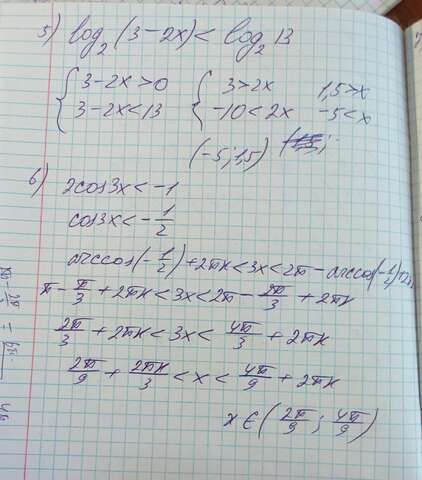 5) log₂(3-2x) < log₂13
{ 3-2x>0 { 3>2x 1,5>x
{ 3-2x<13 { -10<2x -5<x
(-5;1,5)
6) 2cos3x<-1
cos3x<-1/2
arccos(-1/2)+2πk<3x<2π-arccos(-1/2)+2π
π-π/3+2πk<3x<2π-2π/3+2πk
2π/3+2πk<3x<4π/3+2πk
2π/9+2πk/3<x<4π/9+2πk
x∈(2π/9;4π/9)